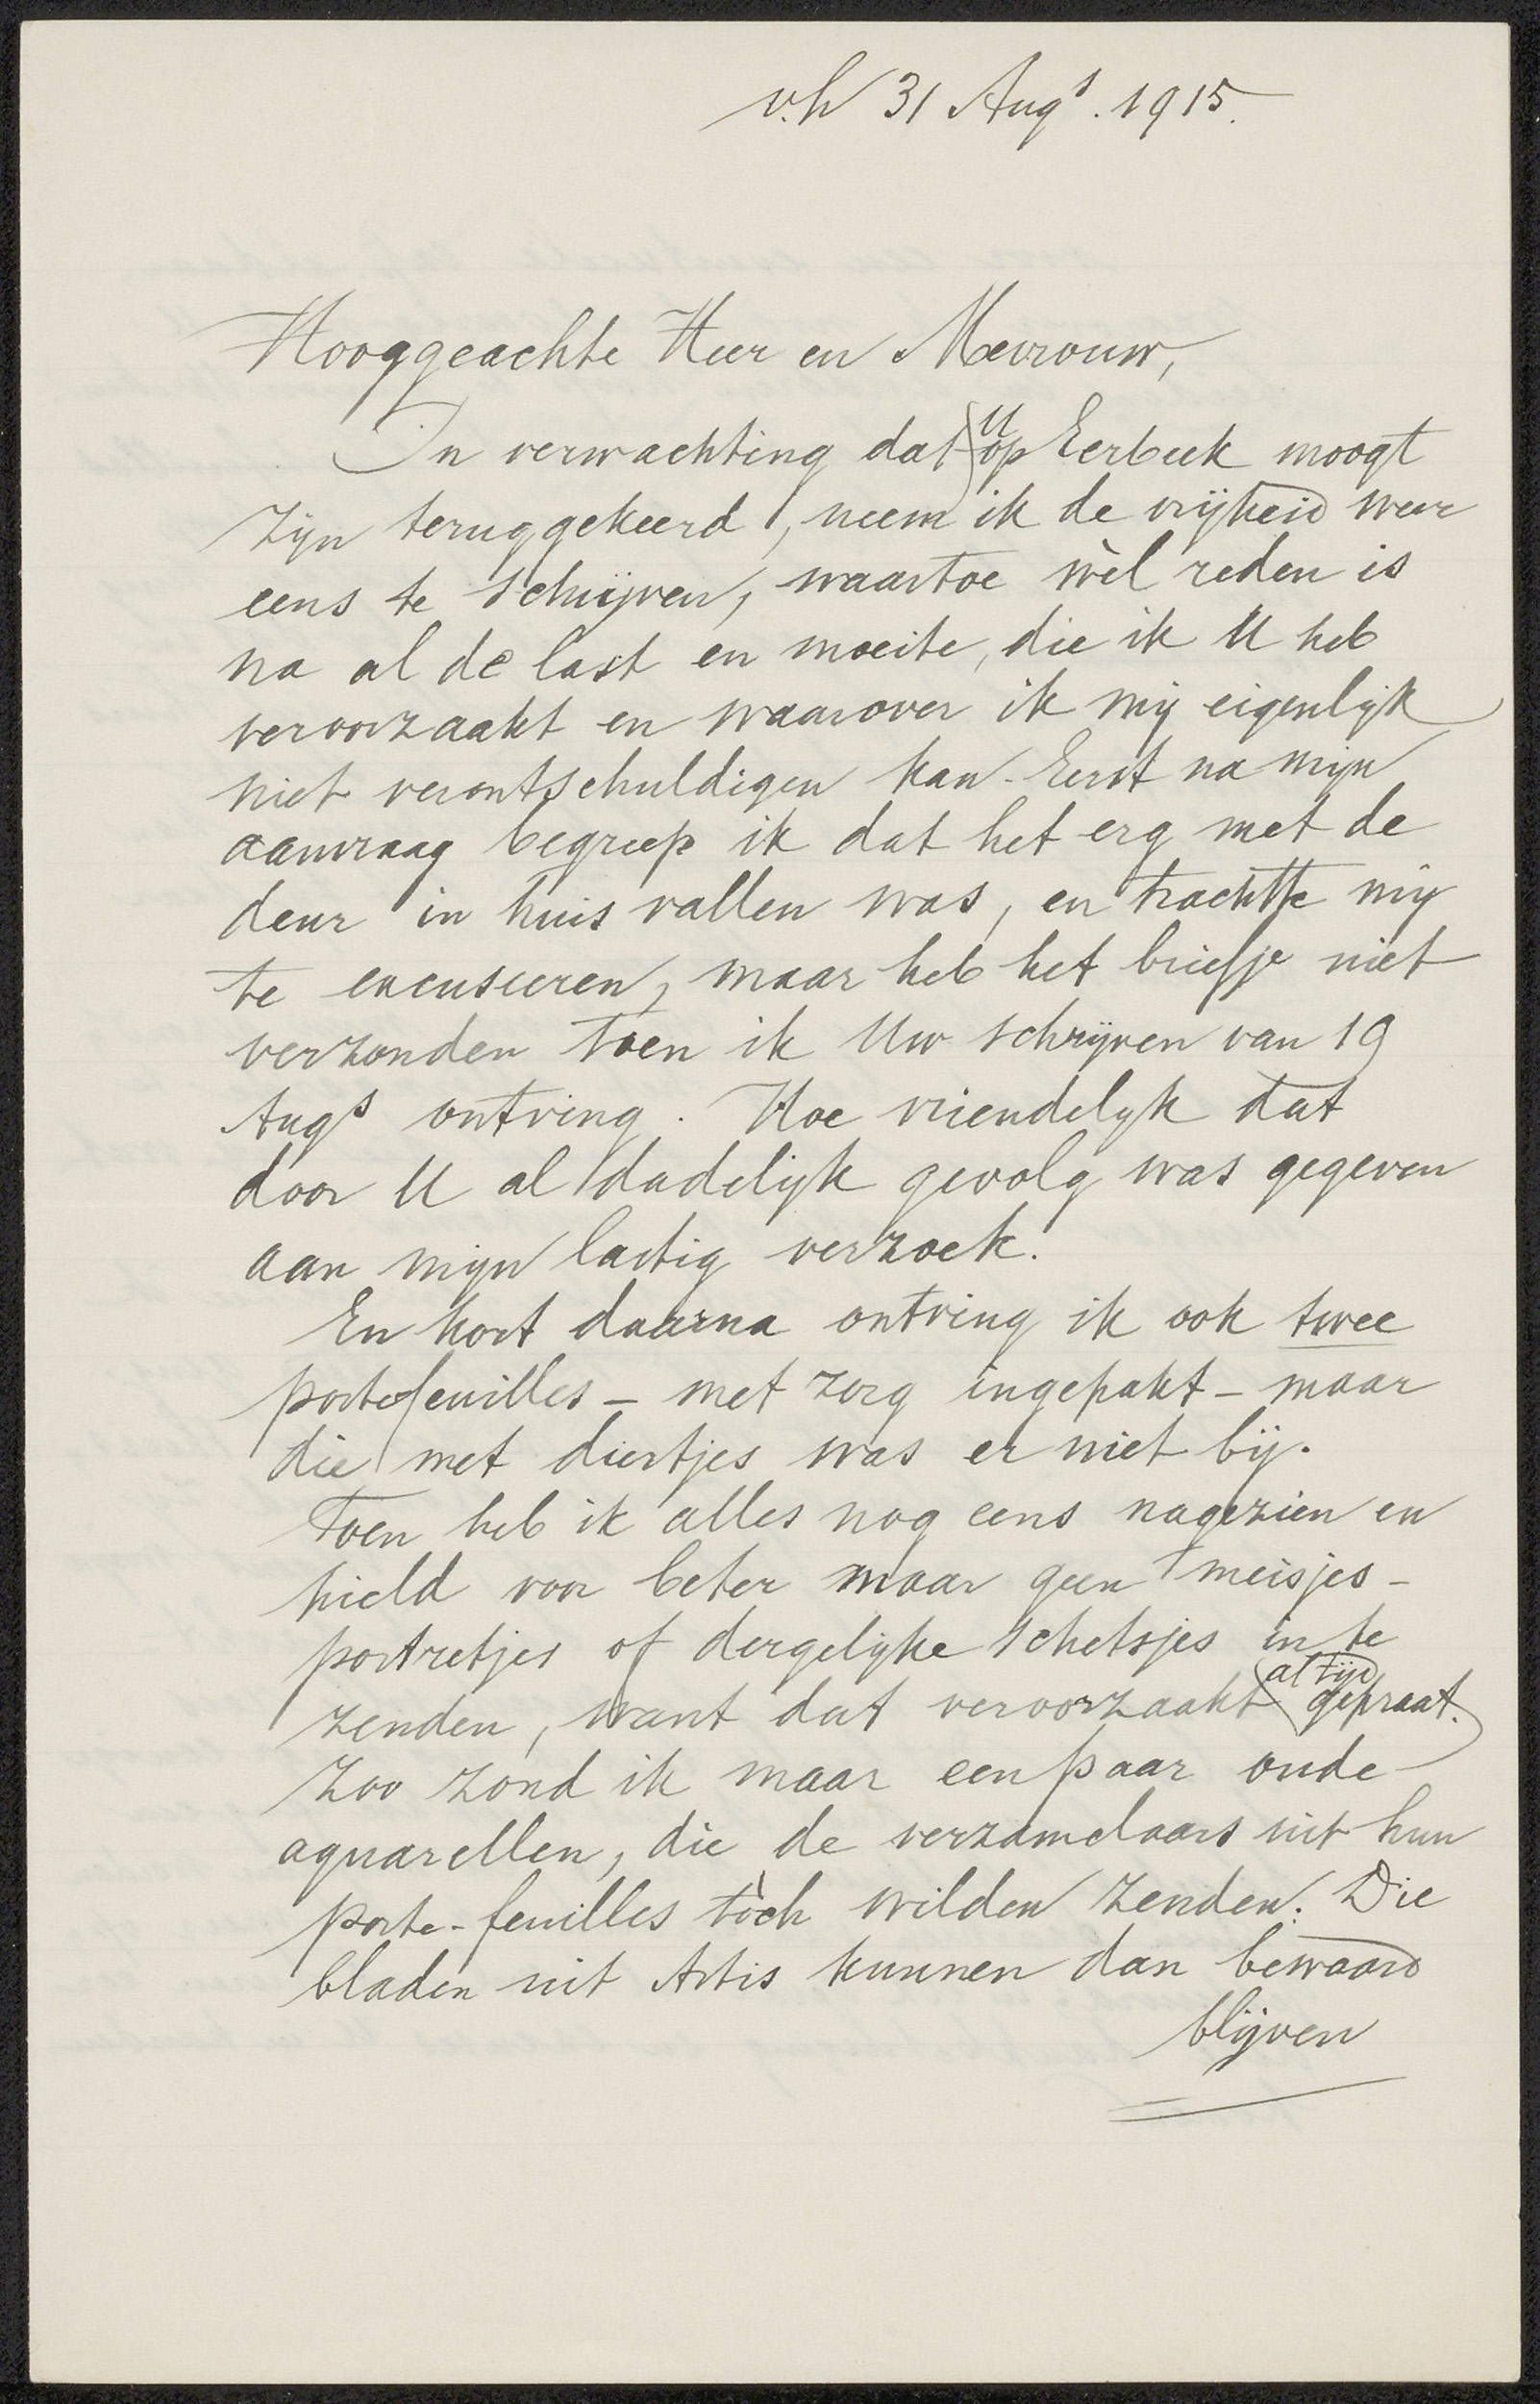 v.h 31 Augs. 1915.
Hooggeachte Heer en Mevrouw,
In verwachting dat U op Eerbeek moogt
zijn teruggekeerd, neem ik de vrijheid weer
eens te schrijven, waartoe wèl reden is
na al de last en moeite, die ik U heb
veroorzaakt en waarover ik mij eigenlijk
niet verontschuldigen kan. Eerst na mijn
aanvraag begreep ik dat het erg met de
deur in huis vallen was, en trachtte mij
te excuseeren, maar heb het briefje niet
verzonden toen ik Uw schrijven van 19
Augs ontving. Hoe vriendelijk dat
door U al dadelijk gevolg was gegeven
aan mijn lastig verzoek.
En kort daarna ontving ik ook twee
portefeuilles – met zorg ingepakt – maar
die met diertjes was er niet bij.
Toen heb ik alles nog eens nagezien en
hield voor beter maar geen meisjes-
portretjes of dergelijke schetsjes in te
zenden, want dat veroorzaakt altijd gepraat.
Zoo zond ik maar een paar oude
aquarellen, die de verzamelaars uit hun
porte-feuilles tòch wilden zenden. Die
bladen uit Artis kunnen dan bewaard
blijven